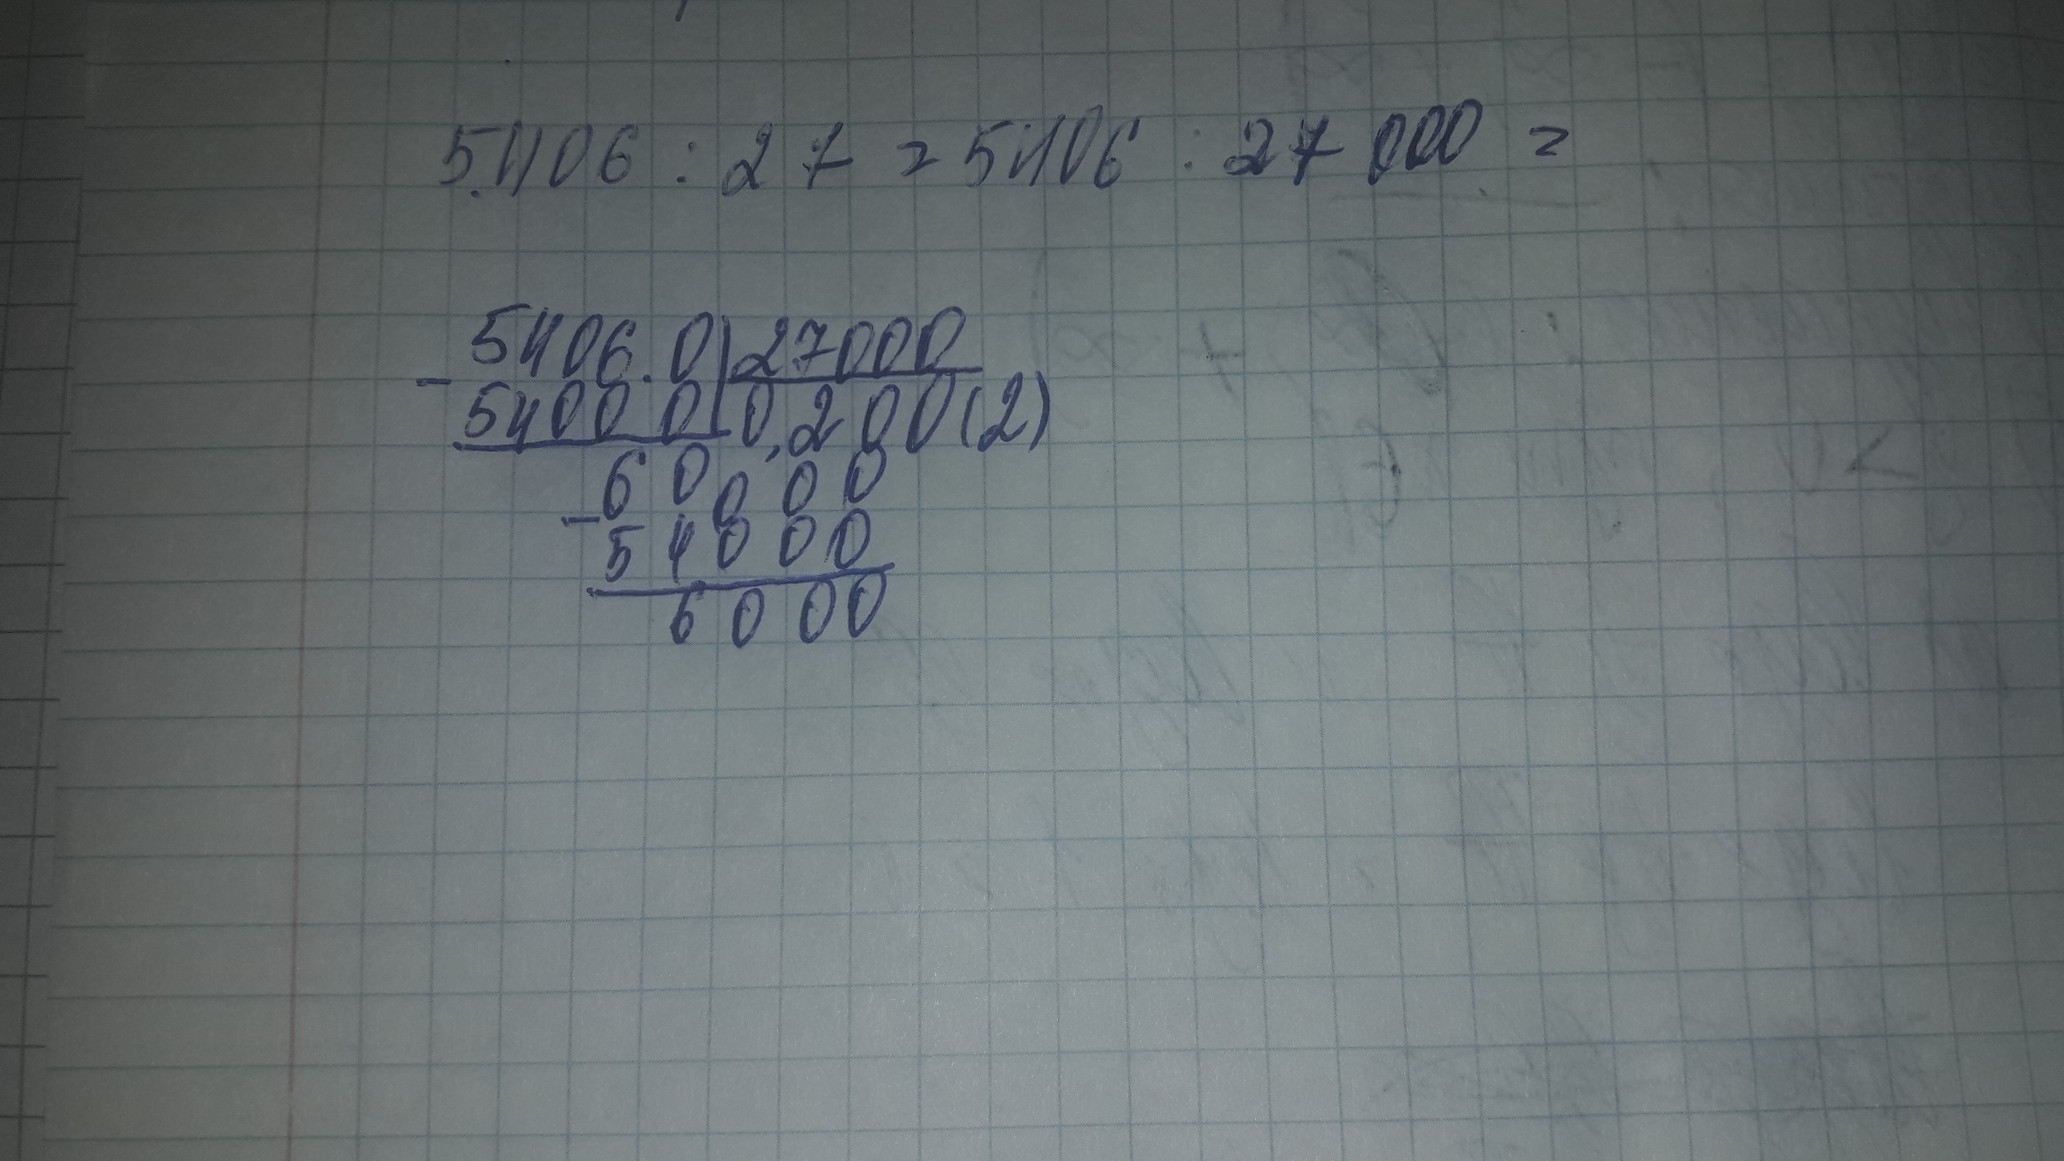 5.406 : 27 = 5406 : 27000 =
- 5406.0 | 27000
54000 | 0,200(2)
- 60000
54000
6000